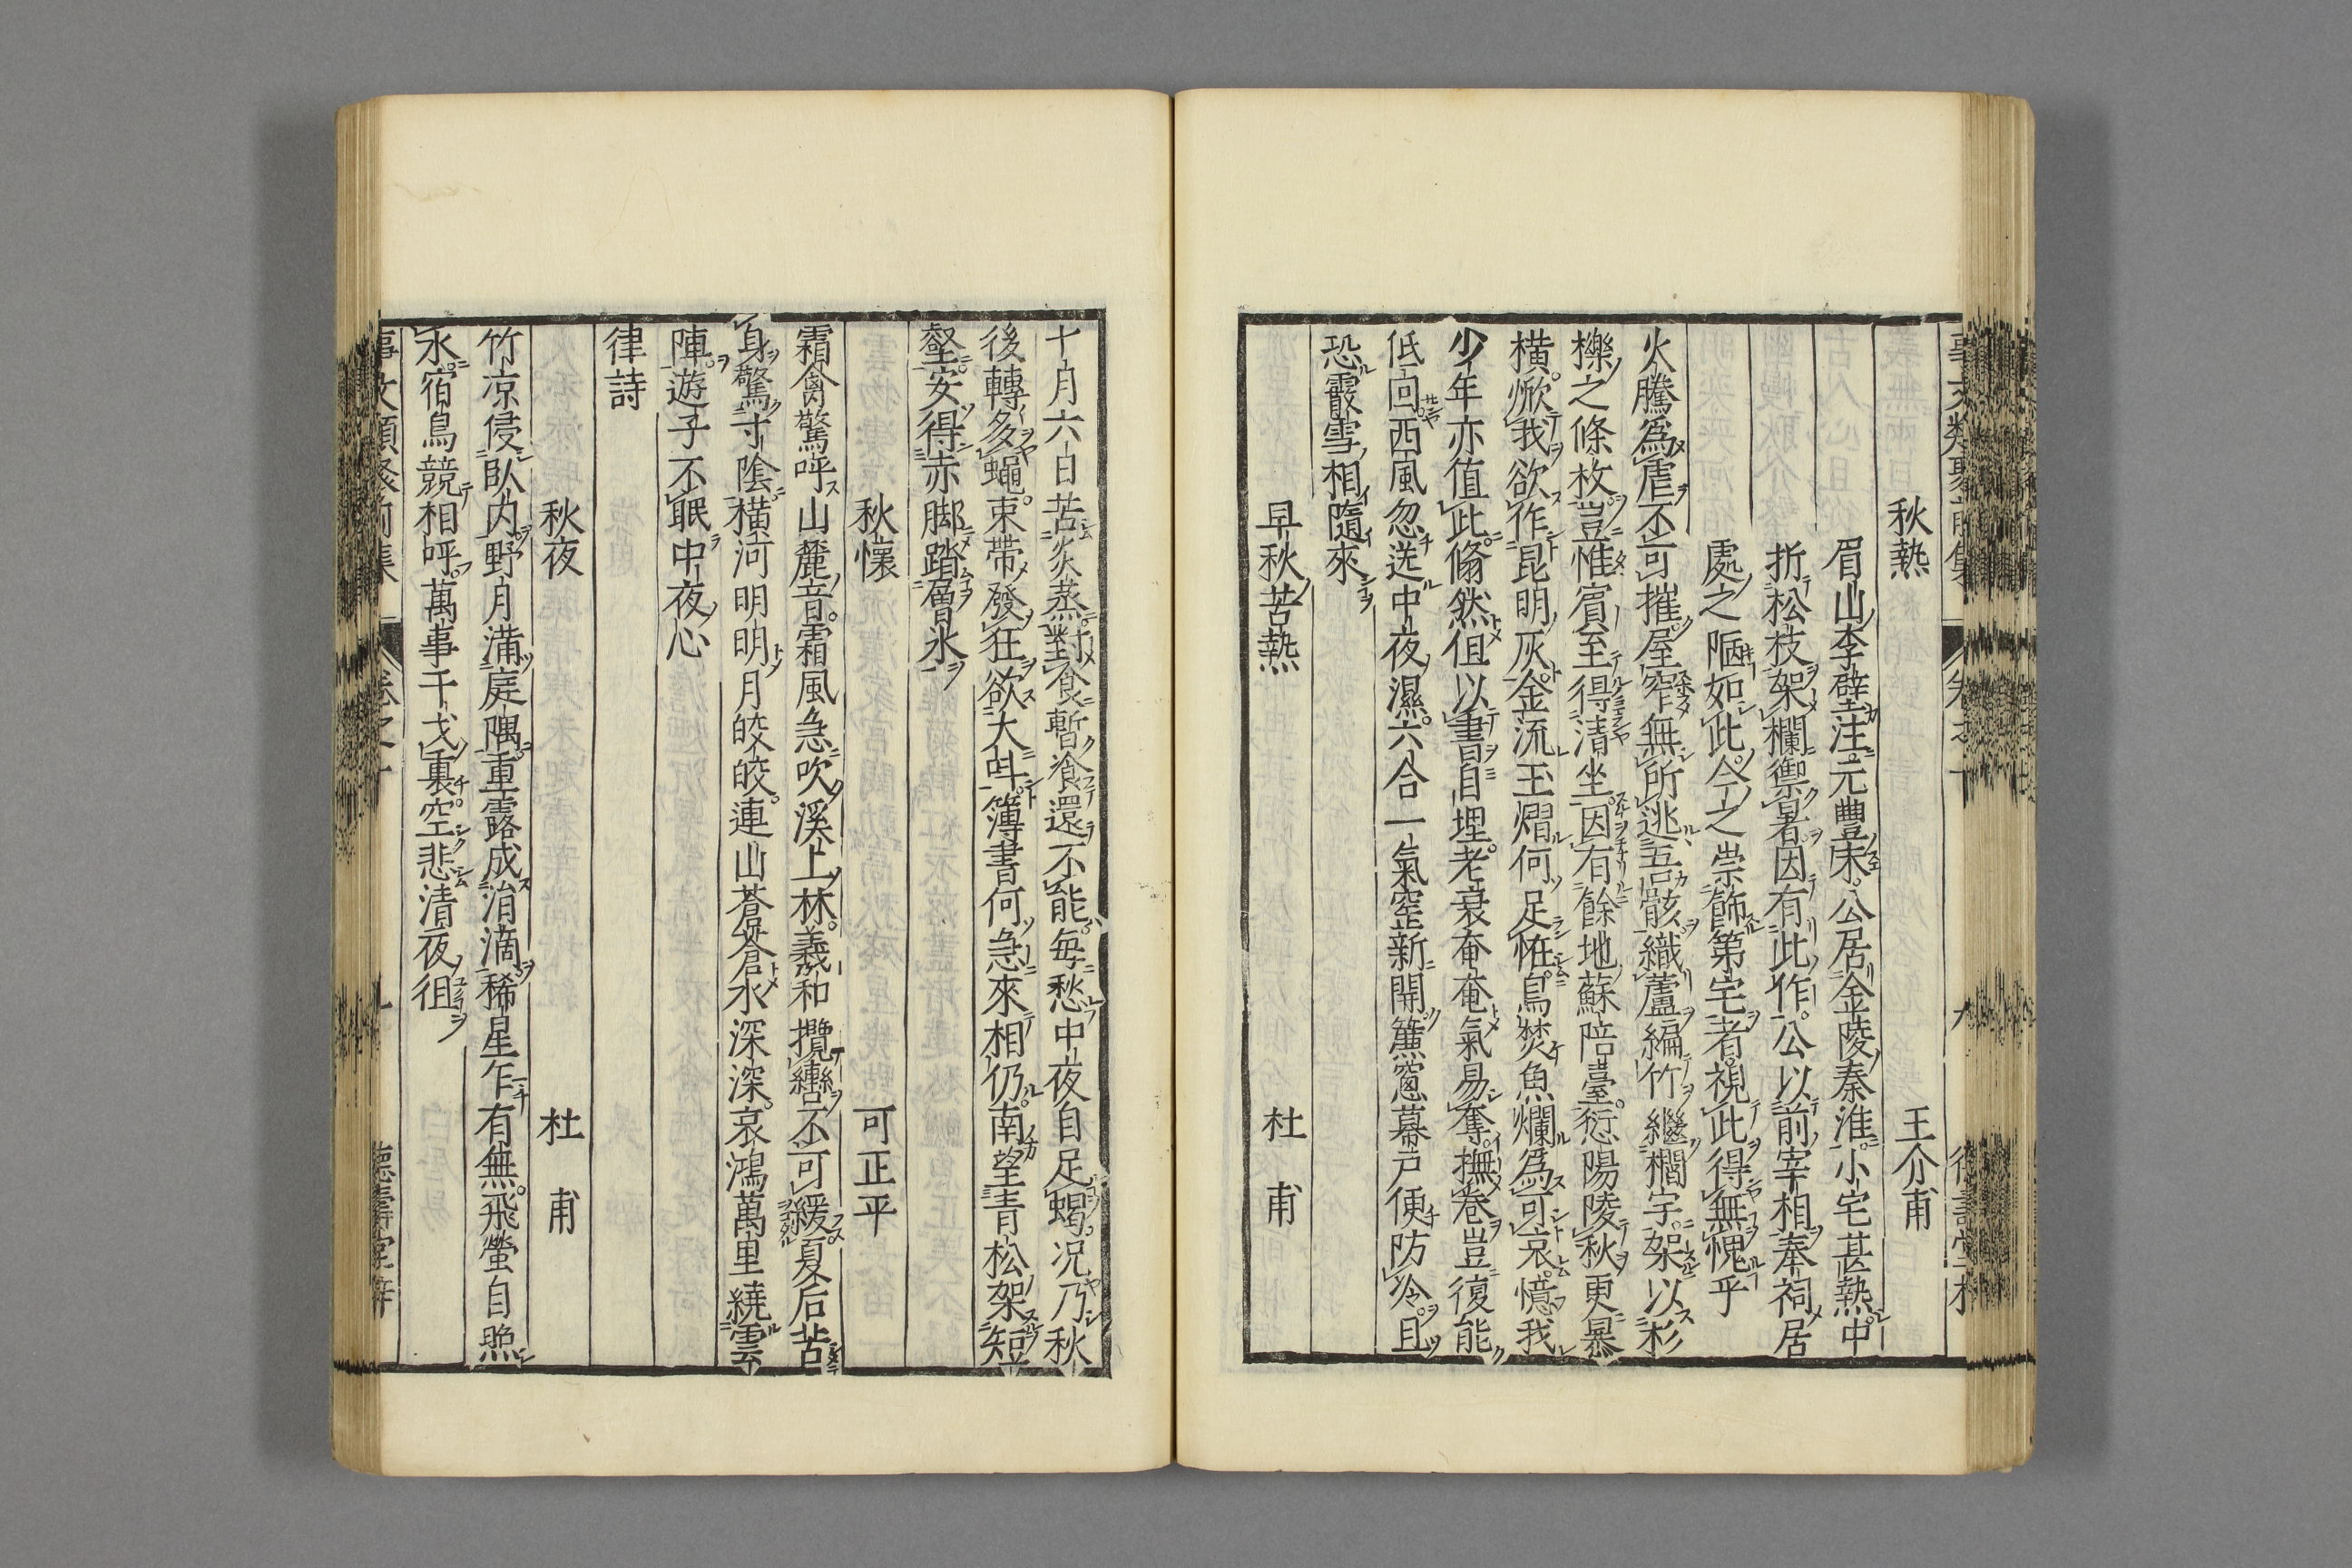 秋熱　王介甫
眉山李壁注元豐末公居金陵秦淮小宅甚熱中
折松枝架欄禦暑因有此作公以前宰相奉祠居
處之陋如此今之崇飾第宅者視此得無愧乎
火騰爲虐不可摧屋窄無所逃吾骸織蘆編竹繼櫩宇架以杉
櫟之條枚豈惟賓至得清坐因有餘地蘇陪臺愆陽陵秋更暴
横焮我欲作昆明灰金流玉熠何足恠鳥焚魚爛爲可哀憶我
少年亦值此翛然但以書自埋老衰奄奄氣易奪撫卷豈復能
低回西風忽送中夜濕六合一氣窑新開簾窓幕戸便防冷且
恐霰雪相隨來
早秋苦熱　杜甫
十月六日苦炎蒸對食暫飡還不能毎愁中夜自足蝎况乃秋
後轉多蠅束帶發狂欲大呌簿書何急來相仍南望青松架短
壑安得赤脚踏層氷
秋懷　可正平
霜禽驚呼山麓音霜風急吹溪上林羲和攬轡不可緩夏后苦
身驚寸陰横河明明月皎皎連山蒼蒼水深深哀鴻萬里繞雲
陣遊子不眠中夜心
律詩
秋夜　杜甫
竹凉侵臥内野月滿庭隅重露成涓滴稀星乍有無飛螢自照
水宿鳥競相呼萬事干戈裏空悲清夜徂